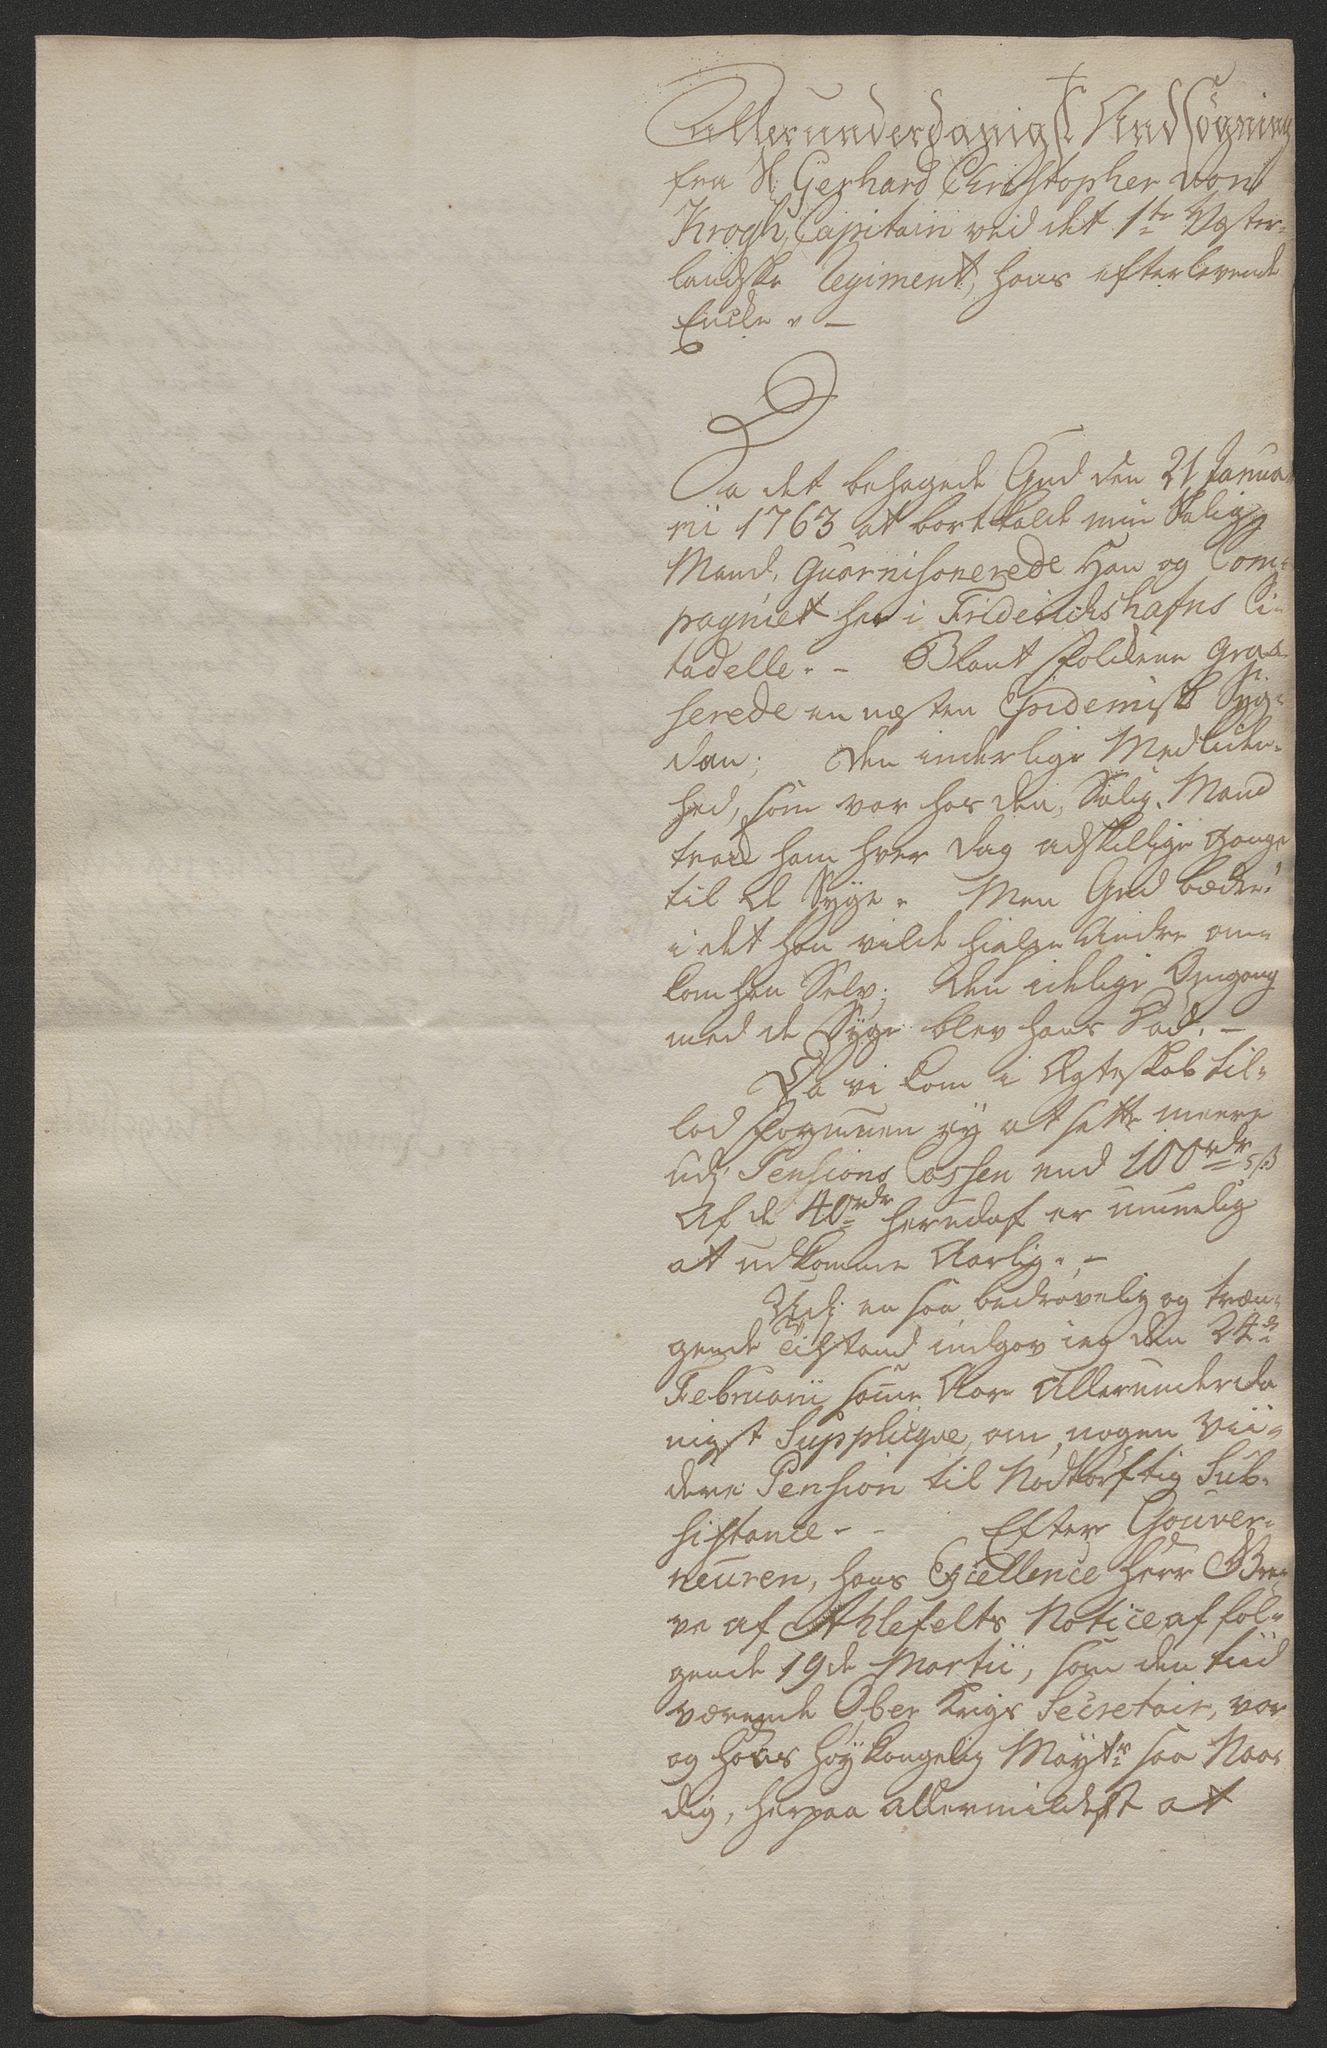 Allerunderdanigst Andsögning
fra Sl. Gerhard Christopher von
Krogh, Capitain veid det 1ste Vester-
landske Regiment, hans efterlevende
Encke. -
Da det behagede Gud den 21 Janua
rii 1763 at bortkalde min Salig
Mand, Guarnisonerede Han og Com-
pagniet her i Friderichshafns Ci-
tadelle. - Blant Folckene Gras-
serede en næsten Epidemisk Syg-
dom; Den inderlige Medliden-
hed, som var hos den Salig Mand
træed ham hver Dag adskillige Gange
til de Syge. Men Gud bædre!
i det han vilde hielpe Andre om-
kom han Selv; Den idelige Omgang
med de Syge blev hans Död. -
Da vi kom i Ægteskab til-
lod Formuen ey at sætte meere
udj Pensions Cassen end 100rdr,
Af de 40rdr herudaf er umuelig
at udkomme Aarlig. -
Udj en saa bedrøvelig og træn-
gende Tilstand indgav ieg den 24de
Februarii samme Aar Allerunderda
nigst Supplicqve, om nogen vii-
dere Pension til Nødtörftig Sub-
sistance - - Efter Gouver-
neuren, hans Excellence Herr Gre-
ve af Ahlefelts Notice af föl-
gende 19de Martii, som den tiid
værende Ober Krigs Secretair, var
og Hans Höy Kongelig Mayts saa Naa
dig, herpaa allermildest at